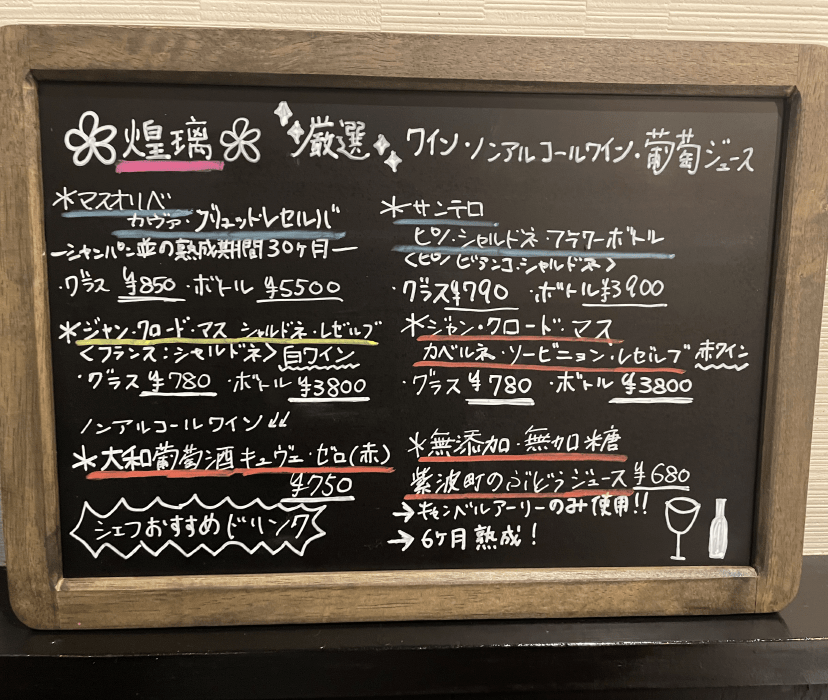 煌璃 厳選 ワイン・ノンアルコールワイン・葡萄ジュース
*マスオリベ
カヴァ・ブリュットレセルバ
ーシャンパン並の熟成期間30ヶ月ー
・グラス ¥850 ・ボトル ¥5500
*ジャン・クロード・マス シャルドネ・レゼルブ
<フランス:シャルドネ> 白ワイン
・グラス ¥780 ・ボトル ¥3800
ノンアルコールワイン↓↓
*大和葡萄酒キュヴェ・ゼロ(赤)
¥750
シェフおすすめドリンク
*サンテロ
ピノ・シャルドネ・フラワーボトル
<ピノ ビアンコ・シャルドネ>
・グラス¥790 ・ボトル¥3900
*ジャン・クロード・マス
カベルネ・ソービニョン・レゼルブ 赤ワイン
・グラス ¥780 ・ボトル ¥3800
*無添加・無加糖
紫波町のぶどうジュース ¥680
→キャンベルアーリーのみ使用!!
→6ヶ月熟成!